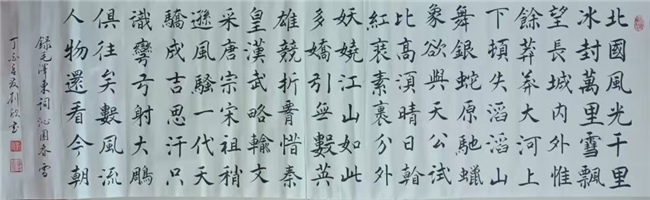 北國風光千里
冰封萬里雪飄
望長城內外惟
餘莽莽大河上
下頓失滔滔山
舞銀蛇原馳蠟
象欲與天公試
比高須晴日
紅裹素裹分外
妖嬈江山如此
多嬌引無數英
雄競折腰惜秦
皇漢武略輸文
采唐宗宋祖稍
遜風騷一代天
驕成吉思汗只
識彎弓射大鵰
俱往矣數風流
人物還看今朝
錄毛澤東詞沁園春雪
丁酉夏劉欣書